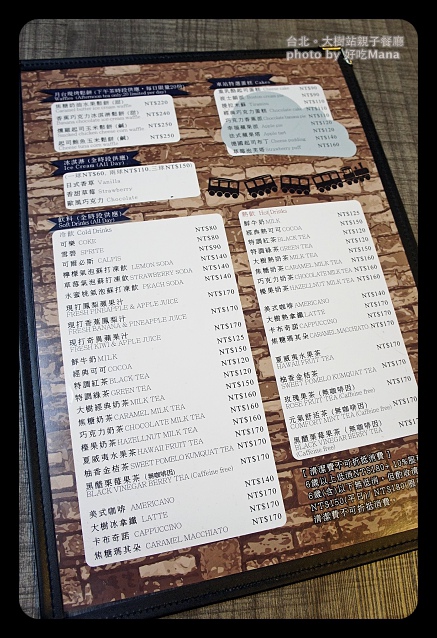 台北。大樹站親子餐廳
photo by 好吃Mana
月台現烤鬆餅 (下午茶時段供應，每日限量20份)
Waffles (Afternoon tea only.20 limited per day)
NT$220
NT$240
NT$250
NT$250
Cakes
冰淇淋 (全時段供應)
Ice Cream (All Day)
一球NT$60, 兩球NT$110,三球NT$150
日式香草 Vanilla
香甜草莓 Strawberry
歐風巧克力 Chocolate
飲料 (全時段供應)
Soft Drinks (All Day)
冷飲 Cold Drinks
可樂 COKE NT$80
雪碧 SPRITE NT$80
可爾必思 CALPIS NT$90
檸檬氣泡蘇打凍飲 LEMON SODA NT$140
草莓氣泡蘇打凍飲 STRAWBERRY SODA NT$140
水蜜桃氣泡蘇打凍飲 PEACH SODA NT$140
現打鳳梨蘋果汁 NT$170
FRESH PINEAPPLE & APPLE JUICE
現打香蕉鳳梨汁 NT$170
FRESH BANANA & PINEAPPLE JUICE
現打奇異蘋果汁 NT$170
FRESH KIWI & APPLE JUICE
鮮牛奶 MILK NT$125
經典可可 COCOA NT$150
特調紅茶 BLACK TEA NT$120
特調綠茶 GREEN TEA NT$120
大樹經典奶茶 MILK TEA NT$150
焦糖奶茶 CARAMEL MILK TEA NT$160
巧克力奶茶 CHOCOLATE MILK TEA NT$160
榛果奶茶 HAZELNUT MILK TEA NT$160
夏威夷水果茶 HAWAII FRUIT TEA NT$170
柚香金桔茶 SWEET POMELO KUMQUAT TEA NT$170
黑醋栗莓果茶 (無咖啡因) NT$170
BLACK VINEGAR BERRY TEA (Caffeine free)
美式咖啡 AMERICANO NT$140
大樹冰拿鐵 LATTE NT$170
卡布奇諾 CAPPUCCINO NT$170
焦糖瑪其朵 CARAMEL MACCHIATO NT$170
熱飲 Hot Drinks
鮮牛奶 MILK NT$125
經典熱可可 COCOA NT$150
特調紅茶 BLACK TEA NT$120
特調綠茶 GREEN TEA NT$120
大樹熱奶茶 MILK TEA NT$150
焦糖奶茶 CARAMEL MILK TEA NT$160
巧克力奶茶 CHOCOLATE MILK TEA NT$160
榛果奶茶 HAZELNUT MILK TEA NT$160
美式咖啡 AMERICANO NT$140
大樹熱拿鐵 LATTE NT$170
卡布奇諾 CAPPUCCINO NT$170
焦糖瑪其朵 CARAMEL MACCHIATO NT$170
夏威夷水果茶 NT$170
HAWAII FRUIT TEA
柚香金桔茶 NT$170
SWEET POMELO KUMQUAT TEA
玫瑰果茶 (無咖啡因) NT$170
ROSE FRUIT TEA (Caffeine free)
元氣舒活茶 (無咖啡因) NT$170
COMFORT MINT TEA (Caffeine free)
黑醋栗莓果茶 (無咖啡因) NT$170
BLACK VINEGAR BERRY TEA
(Caffeine free)
「清潔費不可折抵消費」
6歲以上低消NT$180+10%服
清潔費不可折抵消費。